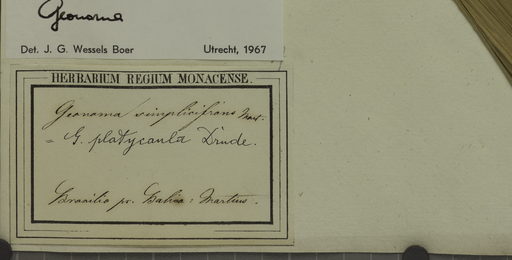 Geonoma
Det. J. G. Wessels Boer Utrecht, 1967
HERBARIUM REGIUM MONACENSE.
Geonoma simplicifrons Mart.
= G. platycaula Drude.
Brasilia pr. Bahia: Martius.